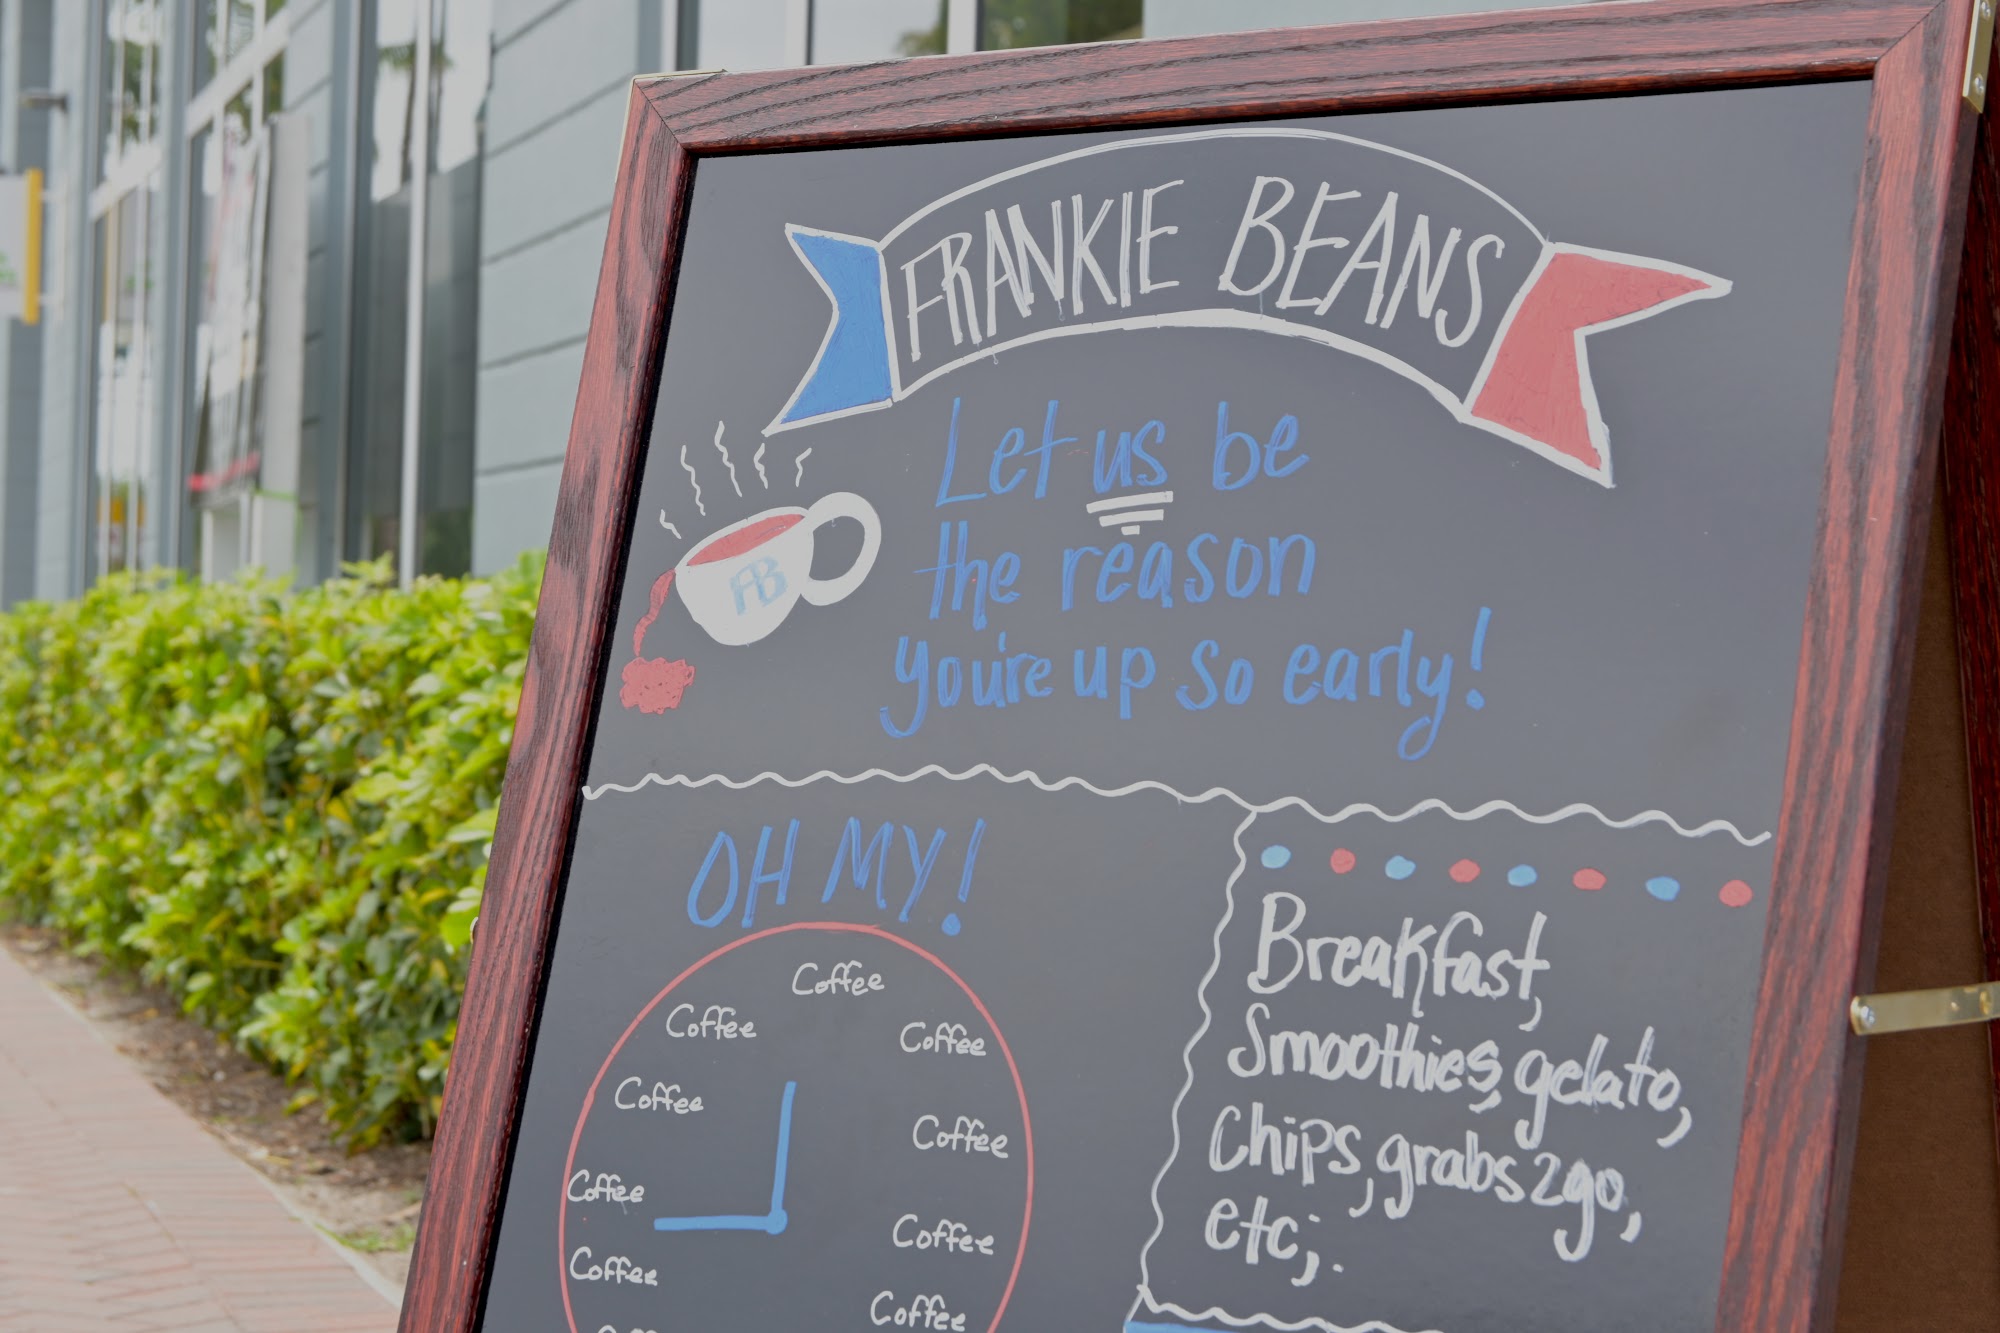 FRANKIE BEANS
Let us be
the reason
you're up so early!
FB
OH MY!
Coffee
Coffee
Coffee
Coffee
Coffee
Coffee
Coffee
Coffee
Coffee
Breakfast,
Smoothies, gelato,
Chips, grabs 2go,
etc;.